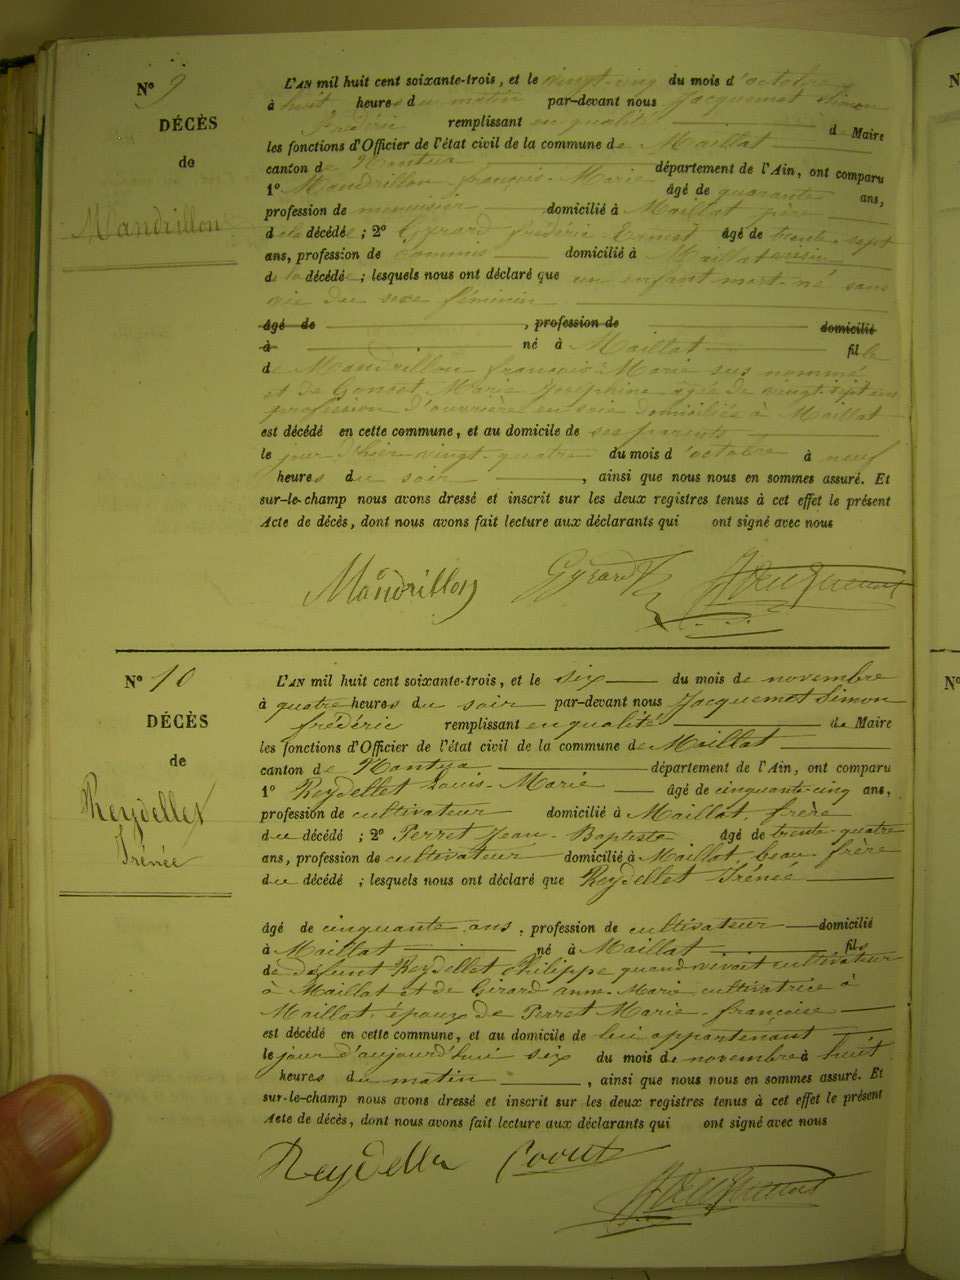 N° 9
DÉCÈS
de
Mandrillon
L'AN mil huit cent soixante-trois, et le vingt-cinq du mois d'octobre
à huit heures du matin par-devant nous Jacquemet Simon
Frédéric remplissant en qualité de Maire
les fonctions d'Officier de l'état civil de la commune de Maillat
canton de Nantua département de l'Ain, ont comparu
1° Mandrillon françois-Marie âgé de quarante ans,
profession de menuisier domicilié à Maillat père
de la décédée ; 2° Gyrard frédéric Ernest âgé de trente-sept
ans, profession de commis domicilié à Maillat voisin
de la décédée ; lesquels nous ont déclaré que un enfant mort-né sans
vie du sexe féminin
âgé de , profession de domicilié
à né à Maillat fille
de Mandrillon françois-Marie sus nommé
et de Goncet Marie Joséphine âgée de vingt-sept ans
profession d'ouvrière en soie domiciliée à Maillat
est décédé en cette commune, et au domicile de ses parents
le jour d'hier vingt-quatre du mois d'octobre à neuf
heures du soir , ainsi que nous nous en sommes assuré. Et
sur-le-champ nous avons dressé et inscrit sur les deux registres tenus à cet effet le présent
Acte de décès, dont nous avons fait lecture aux déclarants qui ont signé avec nous
Mandrillon Gyrard
N° 10
DÉCÈS
de
Reydellet
Irénée
L'AN mil huit cent soixante-trois, et le six du mois de novembre
à quatre heures du soir par-devant nous Jacquemet Simon
frédéric remplissant en qualité de Maire
les fonctions d'Officier de l'état civil de la commune de Maillat
canton de Nantua département de l'Ain, ont comparu
1° Reydellet Louis-Marie âgé de cinquante-cinq ans,
profession de cultivateur domicilié à Maillat, frère
du décédé ; 2° Perret Jean-Baptiste âgé de trente-quatre
ans, profession de cultivateur domicilié à Maillat, beau-frère
du décédé ; lesquels nous ont déclaré que Reydellet Irénée
âgé de cinquante ans, profession de cultivateur domicilié
à Maillat né à Maillat fils
de défunt Reydellet Philippe quand vivait cultivateur
à Maillat et de Girard anne-Marie cultivatrice à
Maillat, époux de Perret Marie-françoise
est décédé en cette commune, et au domicile de lui appartenant
le jour d'aujourd'hui six du mois de novembre à huit
heures du matin , ainsi que nous nous en sommes assuré. Et
sur-le-champ nous avons dressé et inscrit sur les deux registres tenus à cet effet le présent
Acte de décès, dont nous avons fait lecture aux déclarants qui ont signé avec nous
N
N°